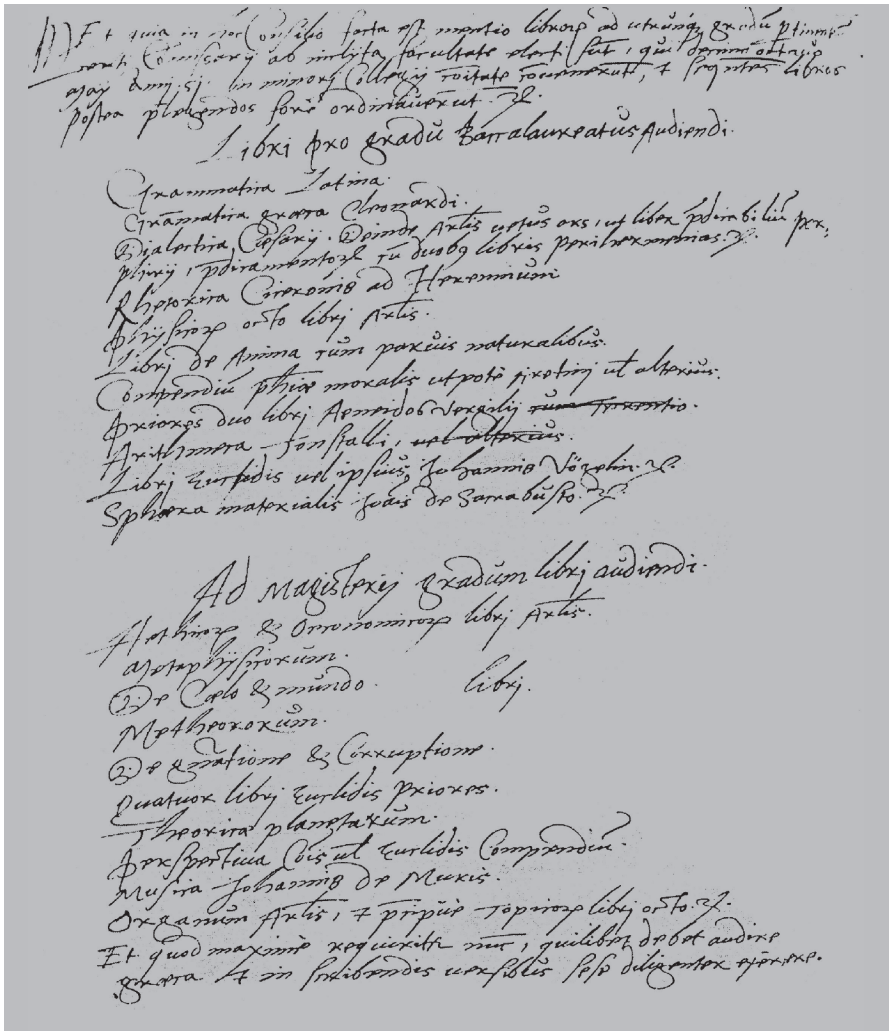 Et quia in hoc Consilio facta est mentio libroꝝ ad utrunqꝫ gradū ptinen-
tiū, Com̄issarij ab inclyta facultate electi sūt, qui
Maij Anni 51 in minoris Collegij com̄itate conuenerūt, & seqn̄tes libros
postea plegendos fore ordinauerūt. &c.
Libri pro gradu Baccalaureatus Audiendi.
Grammatica Latina.
Grāmatica græca Cleonardi.
Dialectica Cæsarij. Deinde Artlis uetus ars, ut liber p̄dicabiliū Por-
phirij, p̄dicamentoꝝ cū duobꝫ libris perihermenias. &c.
Rhetorica Ciceronis ad Herennium
Phÿsicoꝝ octo libri Artlis.
Libri de Anima cum paruis naturalibus.
Compendiū phiæ moralis utpote Aretini ul̄ alterius.
Priores duo libri Aeneidos Vergilij cum Terentio.
Arithmetica Tonstalli, uel alterius.
Libri Euclidis uel ipsius Johannis Vögelin. &c.
Sphæra materialis Joāis de Sacrabusto. &c.
Ad Magisterij gradum libri audiendi.
Aethicoꝝ & Oeconomicoꝝ libri Artlis.
Metaphÿsicorum.
De Cœlo & mundo. libri.
Metheororum.
De gn̄atione & Corruptione.
Quatuor libri Euclidis priores.
Theorica planetarum.
Perspectiua Cōis ul̄ Euclidis Compendiū.
Musica Johannis de Muris.
Organum Artlis, & p̄cipue Topicoꝝ libri octo. &c.
Et quod maxime requiritr nūc, quilibet debet audire
græca & in scribendis uersibus sese diligenter exercere.